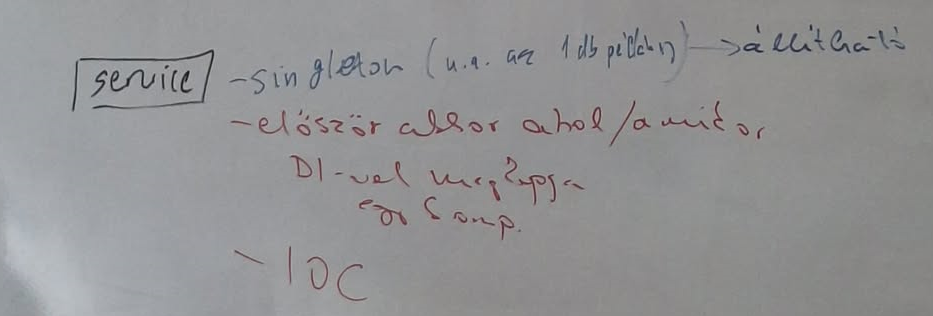 service -singleton (u.a. az 1 db példány) → állítható
-először akkor ahol/amikor
DI-vel megkapja
egy komp.
- IOC